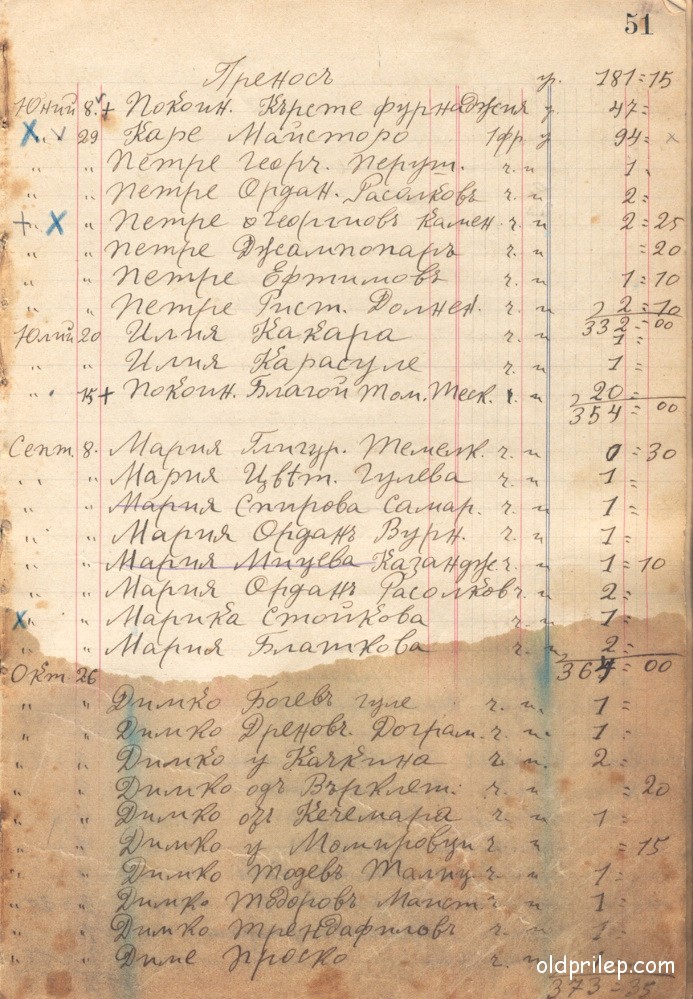 51
Преносъ гр. 181=15
Юний 8. + Покоин. Кърсте фурнаджия у 47=
" 29 Каре Майсторо 1 фр у 94=
" " Петре Георг. Перут. ч. и 1=
" " Петре Ордан. Расолковъ ч. и 2=
+ " " Петре Георгиовъ Камен. ч. и 2=25
" " Петре Джампопаръ ч. и =20
" " Петре Ефтимовъ ч. и 1=10
" " Петре Рист. Долнен. ч. и 2=10
332=00
Юлий 20 Илия Какара ч. и 1=
" " Илия Карасуле ч. и 1=
" 15 + Покоин. Благой Том. Теск. ч. и 20=
354=00
Септ. 8. Мария Глигур. Темелк. ч. и 0=30
" " Мария Цвѣт. Гулева ч. и 1=
" " Мария Спирова Самар. ч. и 1=
" " Мария Орданъ Вурн. ч. и 1=
" " Мария Мицева Казандж ч. и 1=10
" " Мария Орданъ Расолков ч. и 2=
" " Марика Стойкова ч. и 1=
" " Мария Блаткова ч. и 2=
364=00
Окт 26
" " Димко Богевъ гуле ч. и 1=
" " Димко Дреновъ. Дограм. ч. и 1=
" " Димко у Качкина ч. и 2=
" " Димко одъ Върклет. ч. и =20
" " Димко отъ Кечемара ч. и 1=
" " Димко у Момировци ч. и =15
" " Димко Тодевъ Талиц. ч. и 1=
" " Димко Тодоровъ Маист ч. и 1=
" " Димко Трендафиловъ ч. и 1=
" " Диме Проско ч. и
373=35
oldprilep.com